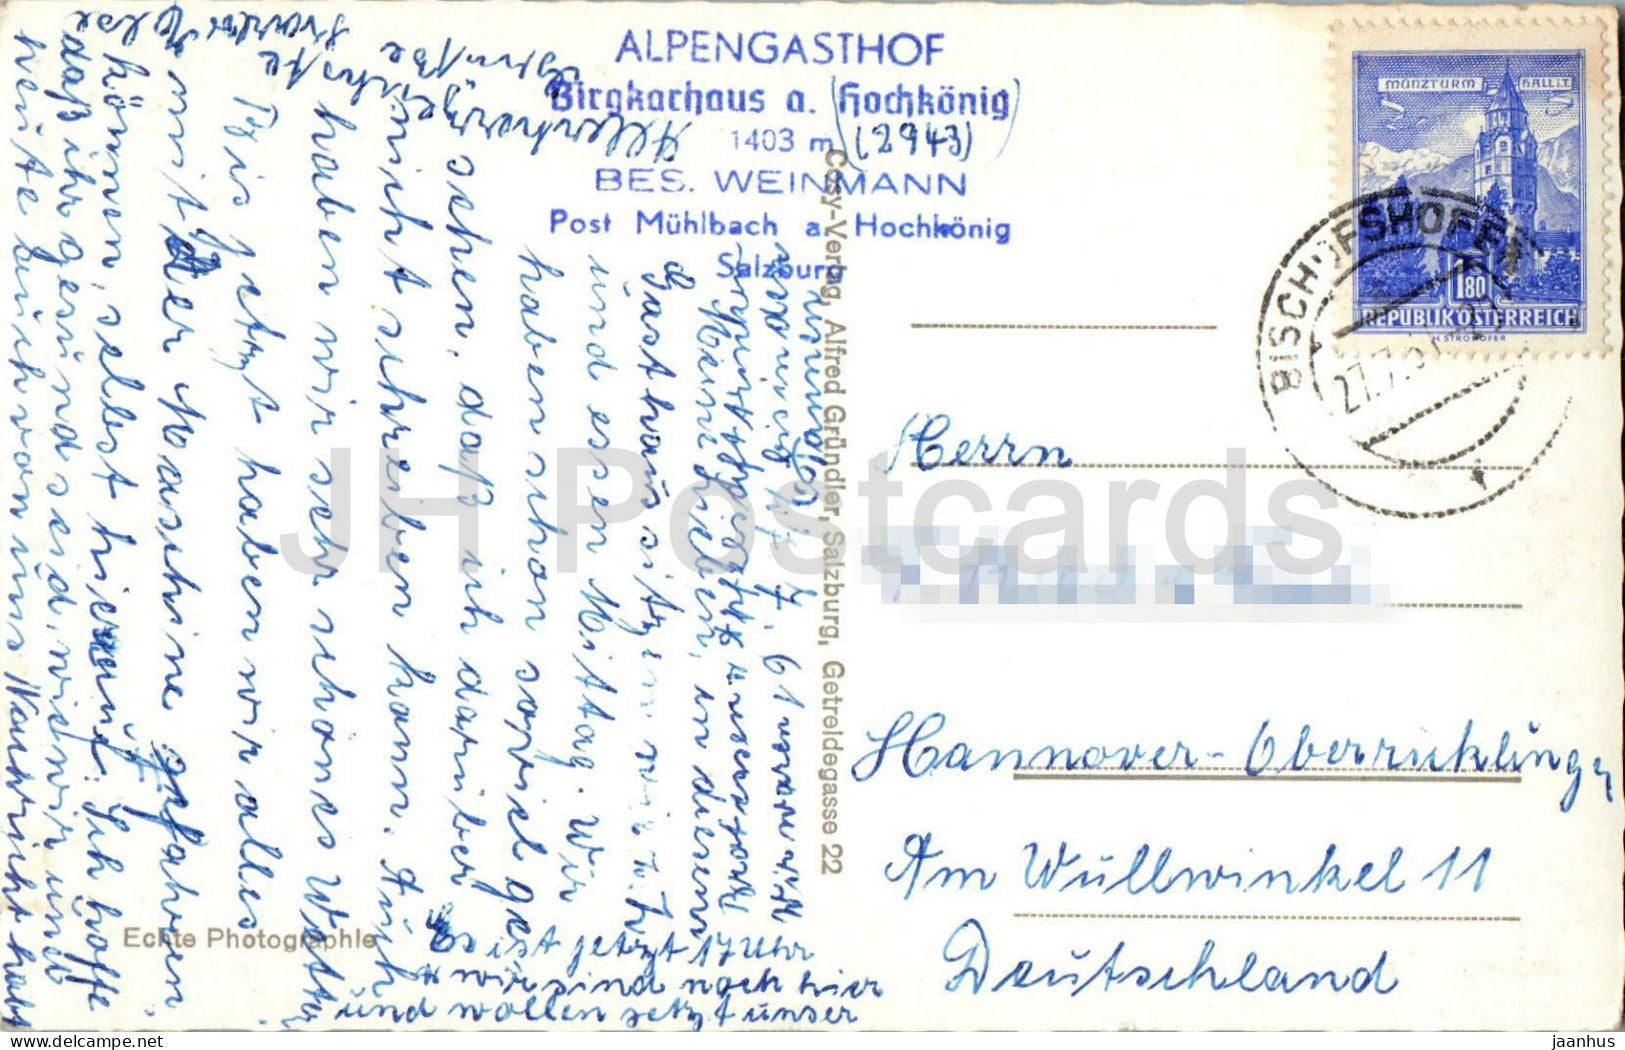 ALPENGASTHOF
Birgkarhaus a. (Hochkönig)
1403 m (2943)
BES. WEINMANN
Post Mühlbach a. Hochkönig
Salzburg
MÜNZTURM HALL i.T.
1.80
REPUBLIK ÖSTERREICH
H. STROHOFER
BISCHOFSHOFEN
27.7.61
Cosy-Verlag, Alfred Gründler, Salzburg, Getreidegasse 22
Echte Photographie
Herrn
Hannover-Oberricklingen
Am Wullwinkel 11
Deutschland
7. 61 waren
Meine Lieben, in diesem
Gasthaus sitzen wir z. Zt.
und essen Mittag. Wir
haben schon soviel ge-
sehen, daß ich darüber
nicht schreiben kann. Auch
haben wir sehr schönes Wetter
Bis jetzt haben wir alles
mit der Maschine gefahren.
können, selbst hierauf. Ich hoffe
daß ihr gesund seid, wie wir und
heute auch von uns Nachricht habt
Allerherzlichste
Grüße
Es ist jetzt 17 Uhr
wir sind noch hier
und wollen jetzt unser
JH Postcards
delcampe.net
jaanhus